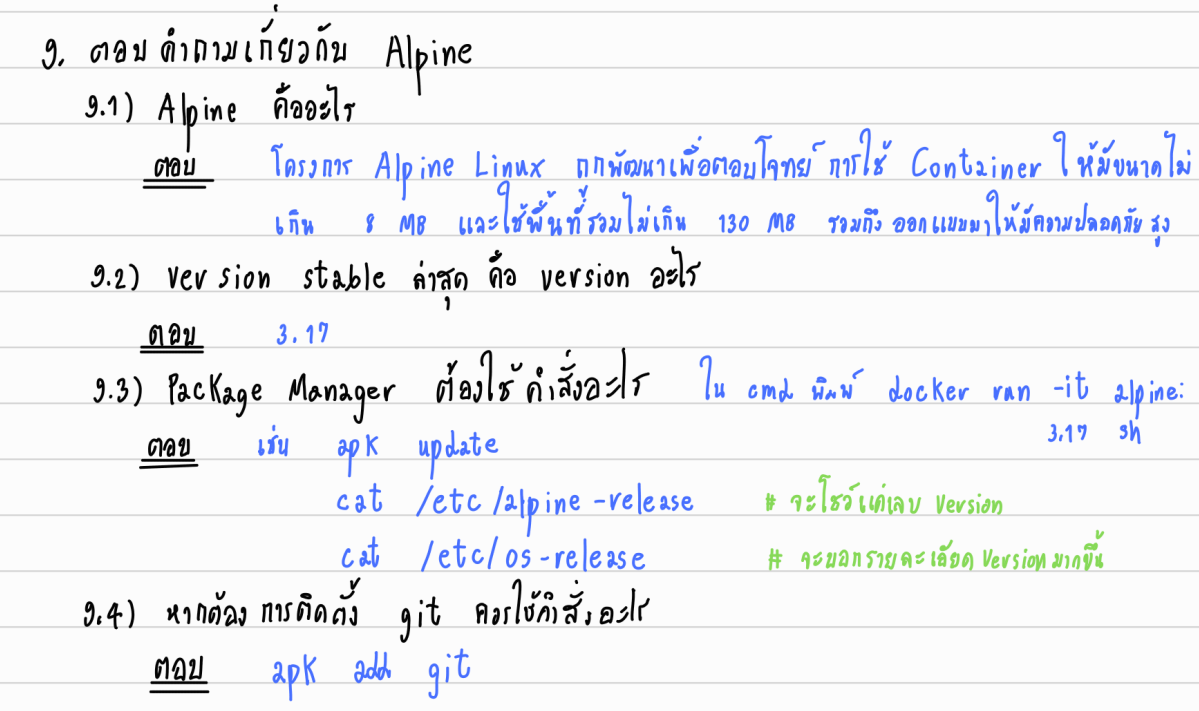 9. ตอบคำถามเกี่ยวกับ Alpine
9.1) Alpine คืออะไร
ตอบ โครงการ Alpine Linux ถูกพัฒนาเพื่อตอบโจทย์ การใช้ Container ให้มีขนาดไม่
เกิน 8 MB และใช้พื้นที่รวมไม่เกิน 130 MB รวมถึง ออกแบบมาให้มีความปลอดภัย สูง
9.2) version stable ล่าสุด คือ version อะไร
ตอบ 3.17
9.3) Package Manager ต้องใช้ คำสั่งอะไร ใน cmd พิมพ์ docker run -it alpine:
3.17 sh
ตอบ เช่น apk update
cat /etc/alpine-release # จะโชว์แค่เลข version
cat /etc/os-release # จะบอกรายละเอียด version มากขึ้น
9.4) หากต้องการติดตั้ง git ควรใช้คำสั่งอะไร
ตอบ apk add git